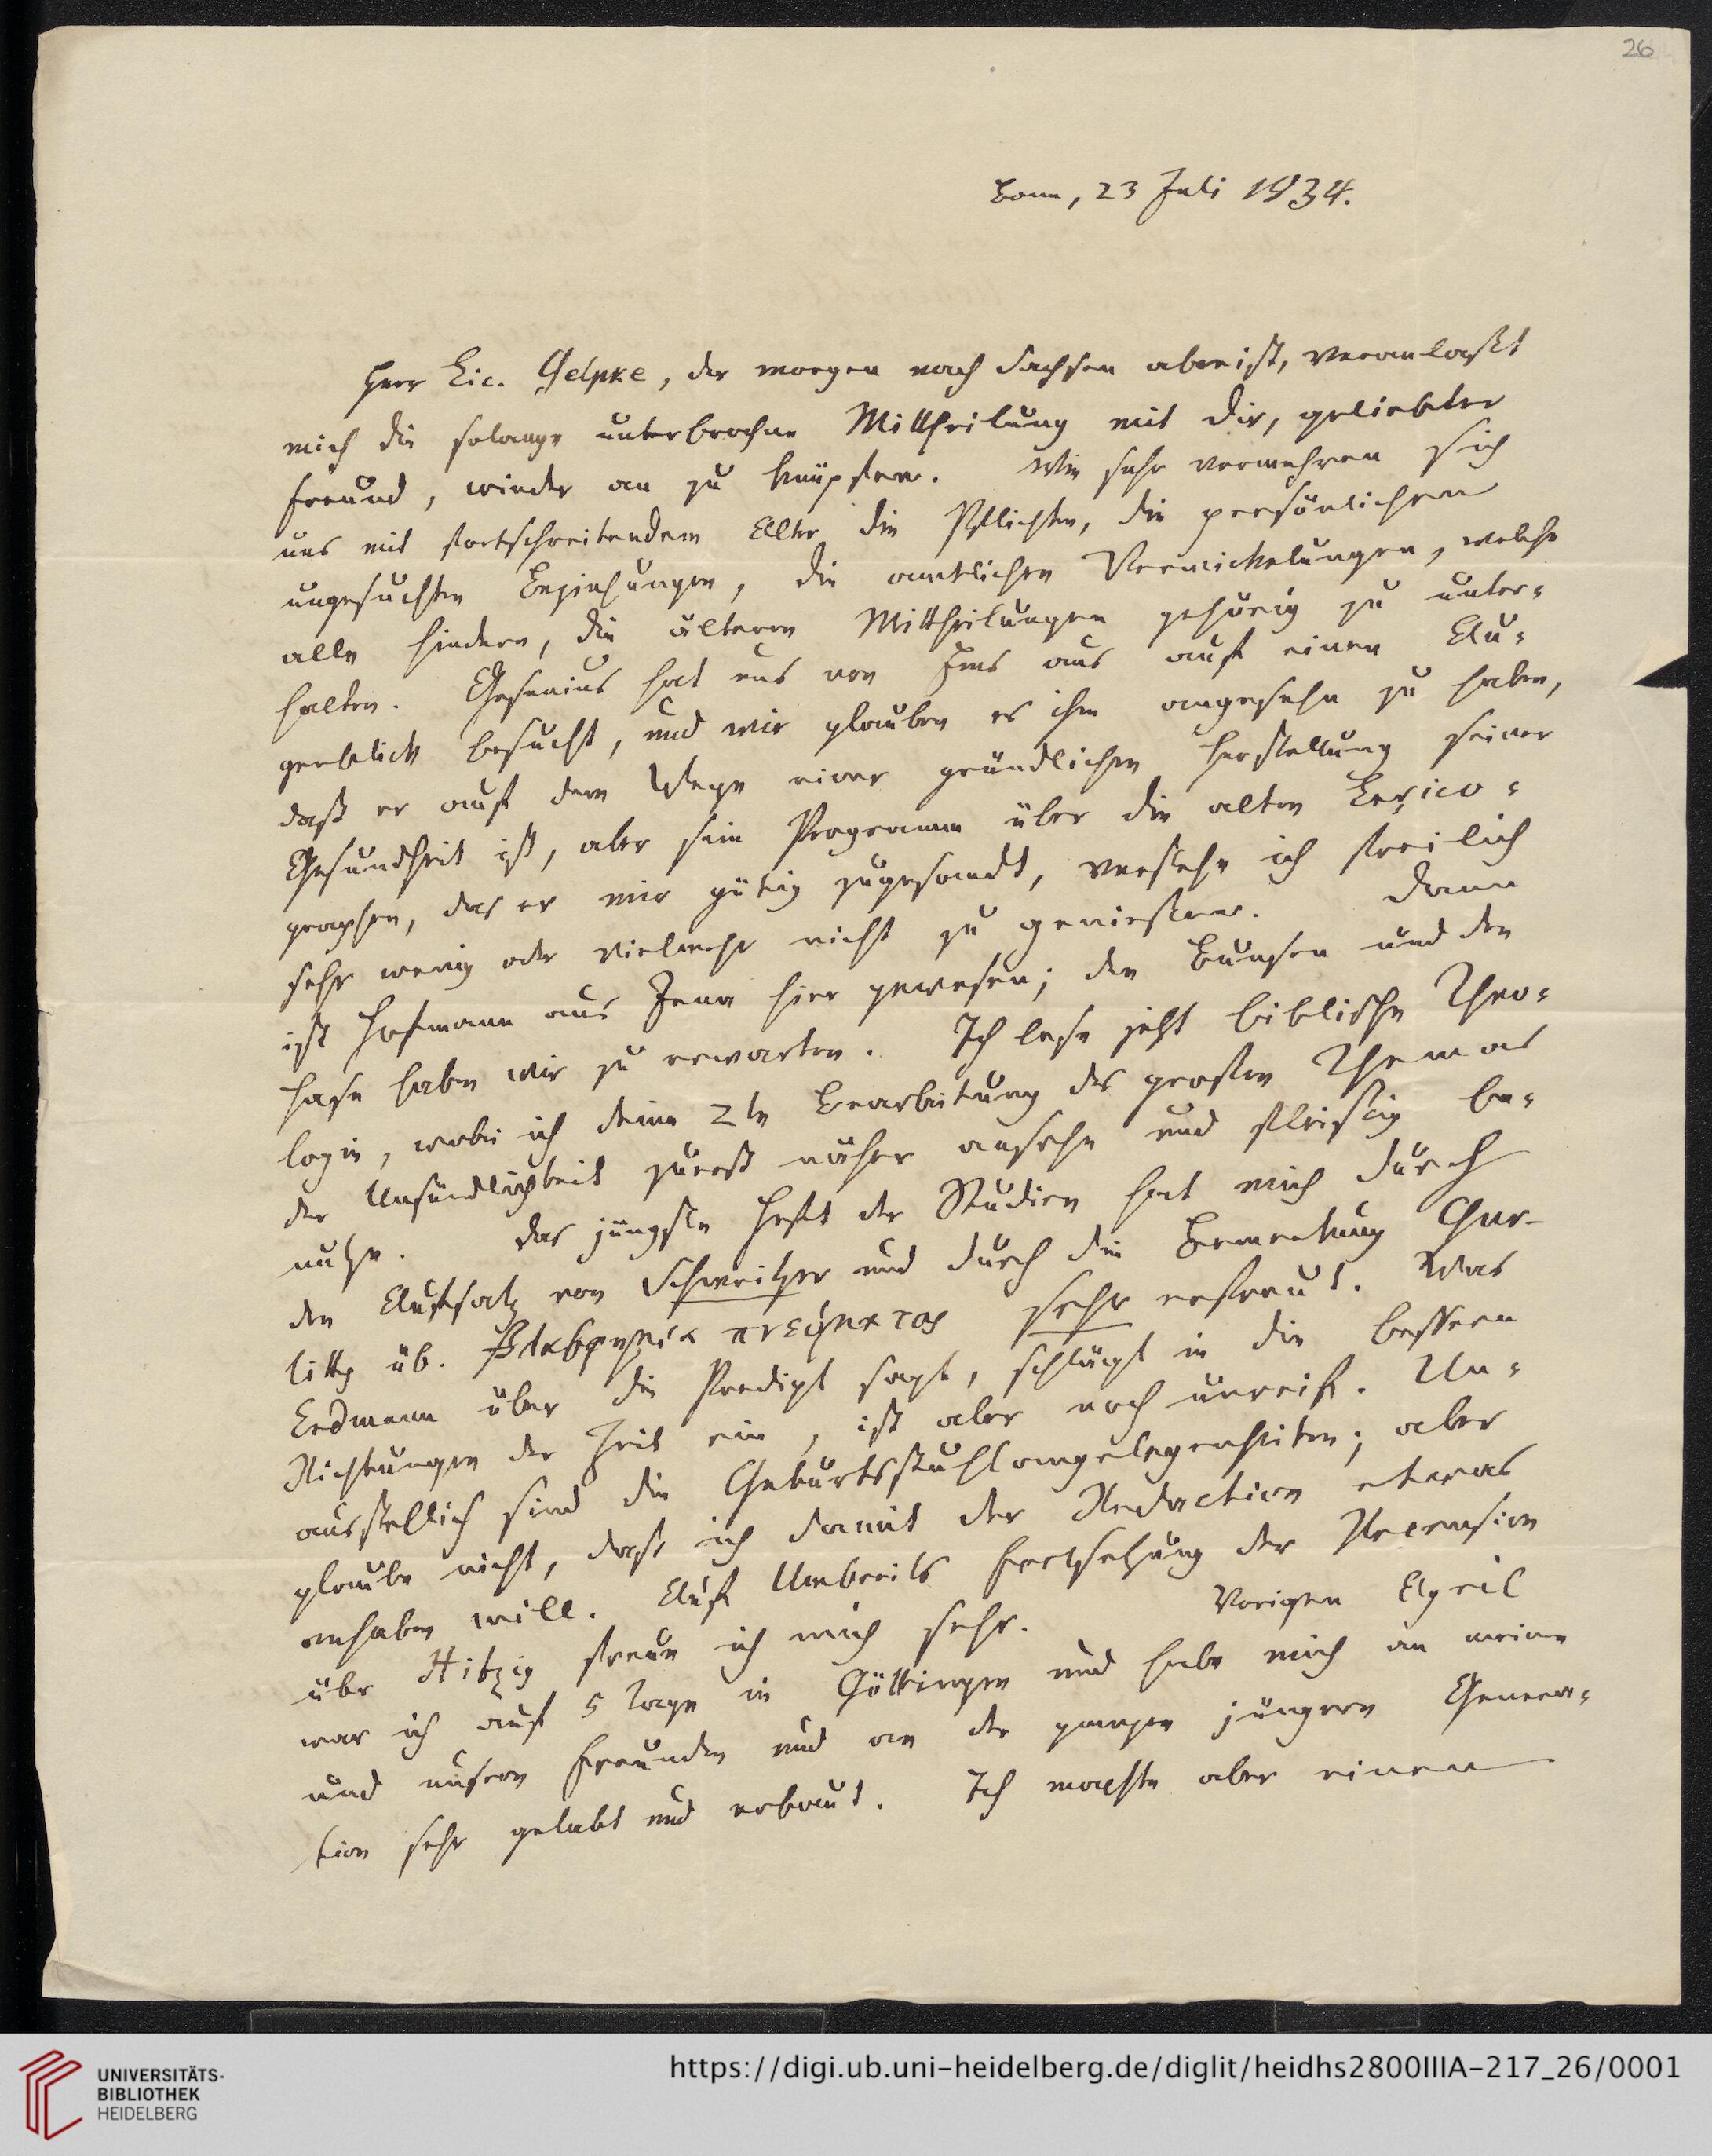 26
Bonn, 23 Juli 1834.
Herr Lic. Gelpke, der morgen nach Sachsen abreist, veranlaßt
mich die solange unterbrochne Mittheilung mit dir, geliebter
Freund, wieder an zu knüpfen. Wie sehr vermehren sich
uns mit fortschreitendem Alter die Pflichten, die persönlichen
ungesuchten Beziehungen, die amtlichen Verwickelungen, welche
alle hindern, die älteren Mittheilungen gehörig zu unter-
halten. Gesenius hat uns von Ems aus auf einen Au-
genblick besucht, und wir glauben es ihm angesehn zu haben,
daß er auf dem Wege einer gründlichen Herstellung seiner
Gesundheit ist, aber sein Programm über die alten Lexico-
graphen, das er mir gütig zugesandt, verstehe ich freilich
sehr wenig oder vielmehr nicht zu genießen. Dann
ist Hofmann aus Jena hier gewesen; den Bunsen und den
Hase haben wir zu erwarten. Ich lese jetzt biblische Theo-
logie, wobei ich deine 2te Bearbeitung des großen Themas
der Unsündlichkeit zuerst näher ansehe und fleißig be-
nutze. Das jüngste Heft der Studien hat mich durch
den Aufsatz von Schweitzer und durch die Bemerkung Gur-
litts üb. βλασφημία πνεύματος sehr erfreut. Was
Erdmann über die Predigt sagt, schlägt in die bessern
Richtungen der Zeit ein, ist aber noch unreif. Un-
ausstellich sind die Geburtsstuhlangelegenheiten; aber
glaube nicht, daß ich damit der Redaction etwas
anhaben will. Auf Umbreits Fortsetzung der Recension
über Hitzig freue ich mich sehr. Vorigen April
war ich auf 5 Tage in Göttingen und habe mich an meinen
und unsern Freunden und an der ganzen jüngern Genera-
tion sehr gelabt und erbaut. Ich machte aber einen
UNIVERSITÄTS-
BIBLIOTHEK
HEIDELBERG
https://digi.ub.uni-heidelberg.de/diglit/heidhs2800IIIA-217_26/0001